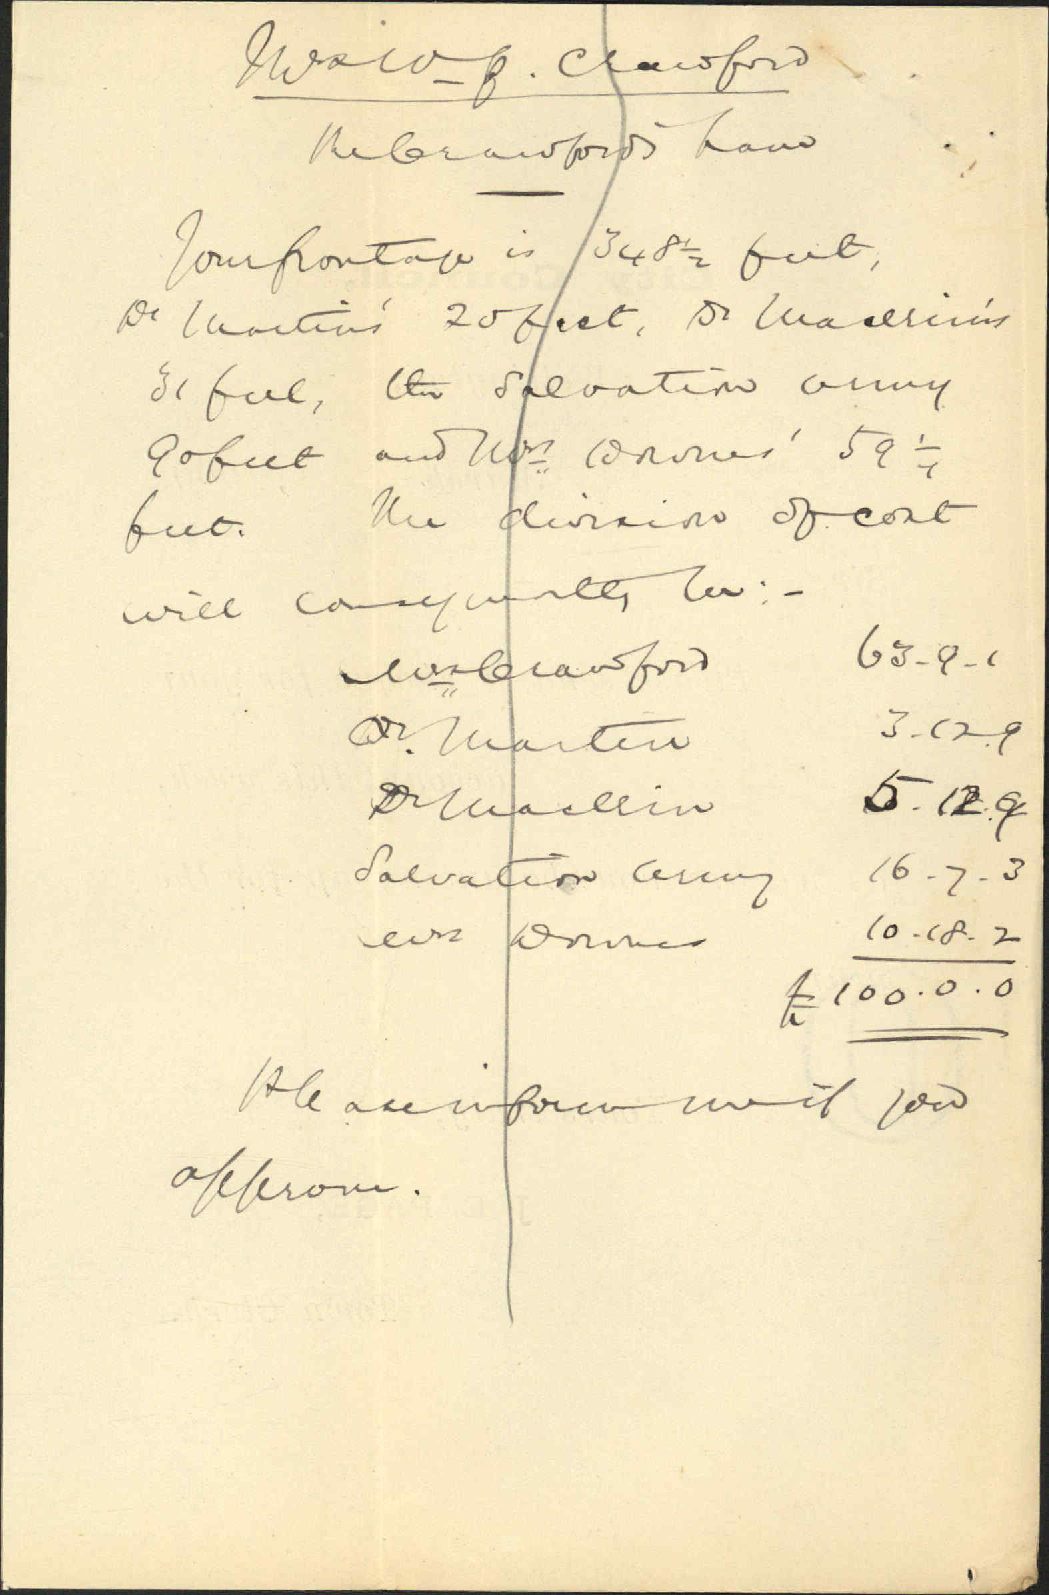 Mrs W. J. Crawford
Re Crawford's Lane
Your frontage is 348½ feet,
Dr Martin's 20 feet, Dr Macklin's
31 feet, the Salvation Army
90 feet and Mrs Downes' 59½
feet. The division of cost
will consequently be:-
Mrs Crawford 63-9-1
Dr. Martin 3-12-9
Dr Macklin 5-12-9
Salvation Army 16-7-3
Mrs Downes 10-18-2
£100.0.0
Please inform me if you
approve.